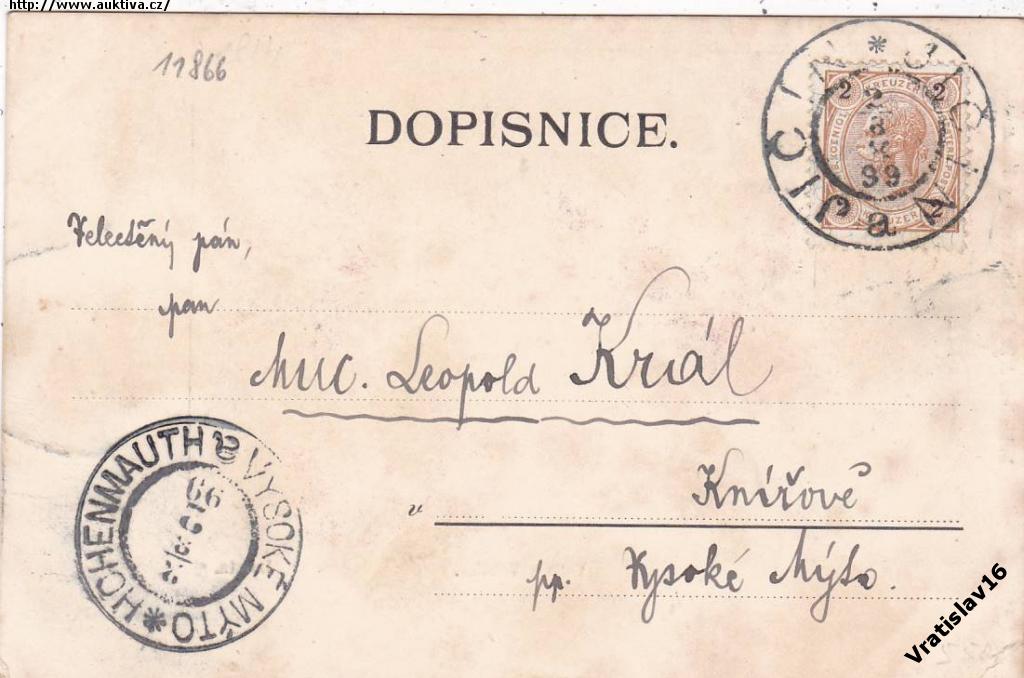 http://www.auktiva.cz/
11866
DOPISNICE.
2 KREUZER 2
JIČIN * JIČIN a
2
8
99
KREUZER
Velectěný pán,
pan
MUC. Leopold Král
v Knířově
pp. Vysoké Mýto.
HOHENMAUTH VYSOKE MÝTO *
99
Vratislav16